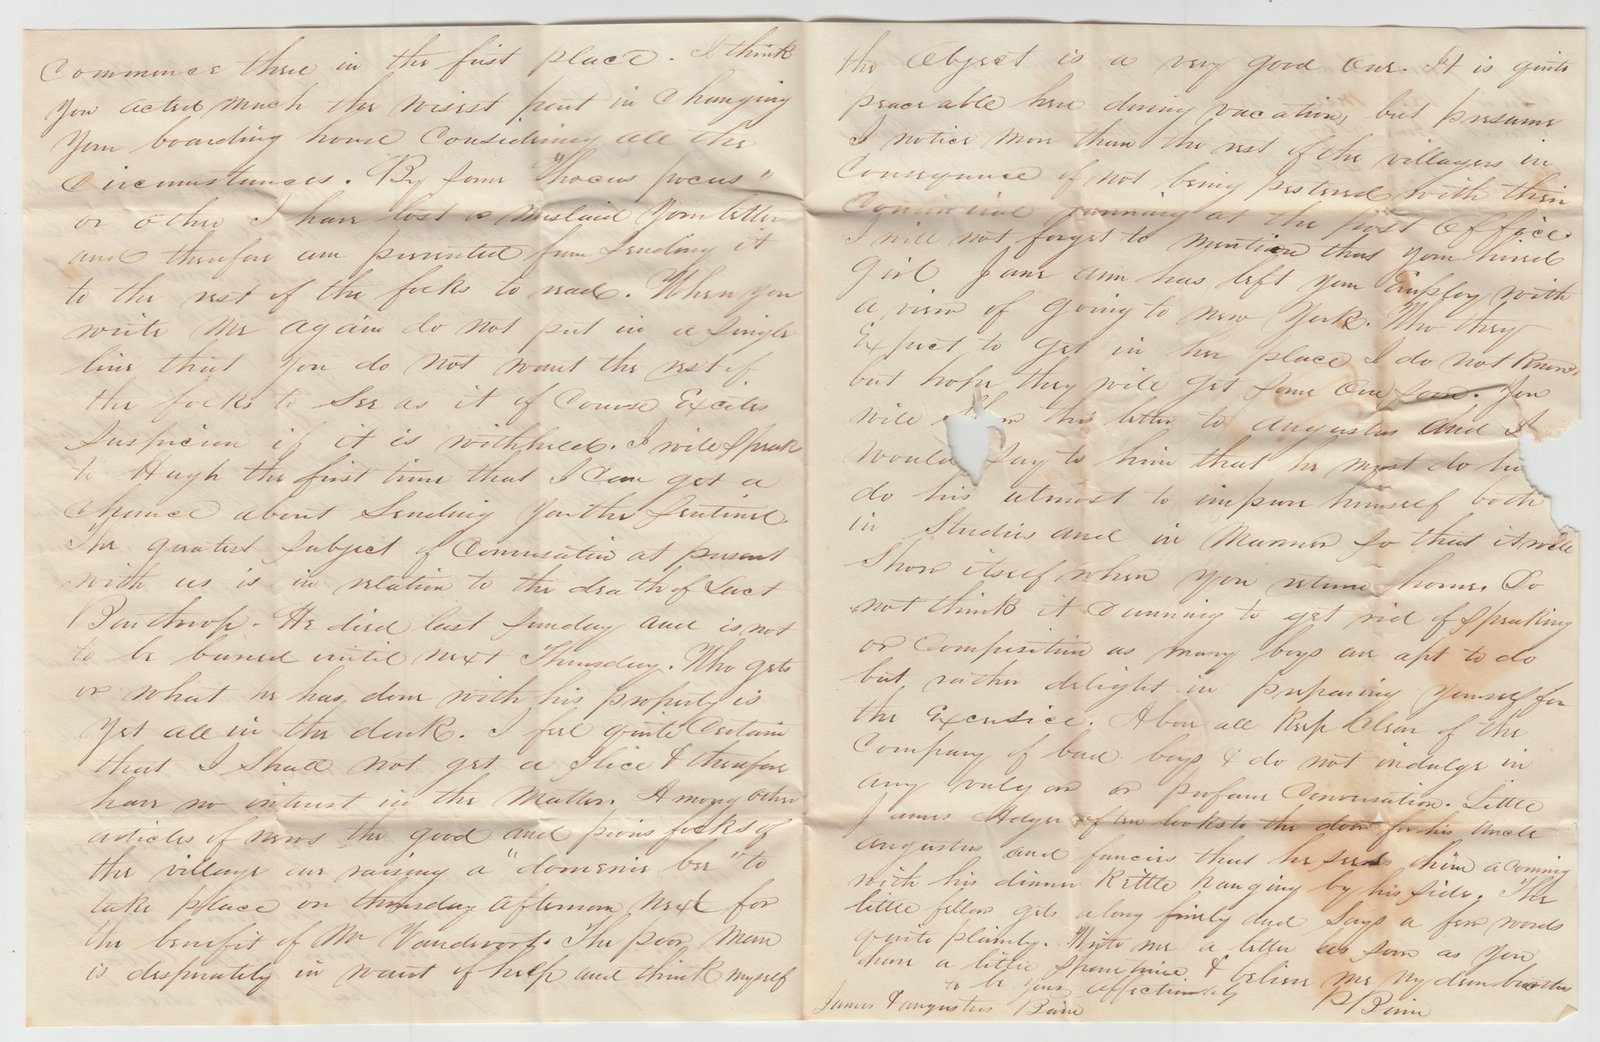 Commence there in the first place. I think
you acted much the wisest part in changing
your boarding house Considering all the
Circumstances. By some "hocus pocus"
or other I have lost or mislaid your letter
and therefore am prevented from sending it
to the rest of the focks to read. When you
write me again do not put in a single
line that you do not want the rest of
the focks to see as it of Course Excites
Suspicion if it is withheld. I will Speak
to Hugh the first time that I can get a
Chance about Sending you the Sentinel.
The greatest Subject of Conversation at present
with us is in relation to the death of
He died last Sunday and is not
to be buried until next Thursday. Who gets
or what he has done with his property is
yet all in the dark. I feel quite Certain
that I Shall not get a Slice & therefore
have no interest in the Matter. Among other
articles of news the good and pious focks of
the village are raising a "domenie bee" to
take place on thursday afternoon next for
the benefit of Mr Vandervort. The poor man
is desperately in want of help and think myself
the Object is a very good One. It is quite
peaceable here during vacation, but presume
I notice more than the rest of the villagers in
Consequence of not being pestered with their
Continual running at the post Office.
I will not forget to mention that your hired
Girl Jane ann has left your Employ with
a view of going to new York. Who they
Expect to get in her place I do not Know,
but hope they will get some One soon. You
will this letter to augustus and I
would Say to him that he must do his
do his utmost to improve himself both
in Studies and in Manner so that it will
Show itself when you return home. Do
not think it Cunning to get rid of Speaking
or Composition as many boys are apt to do
but rather delight in preparing yourself for
the Excersice. Above all Keep Clear of the
Company of bad boys & do not indulge in
any vulgar or profane Conversation. Little
James often looks to the door for his uncle
augustus and fancies that he sees him a coming
with his dinner Kettle hanging by his side. The
little fellow gets along finely and Says a few words
quite plainly. Write me a letter as soon as you
have a little Spare time & believe me my dear brother
to be your affectionately
James & augustus